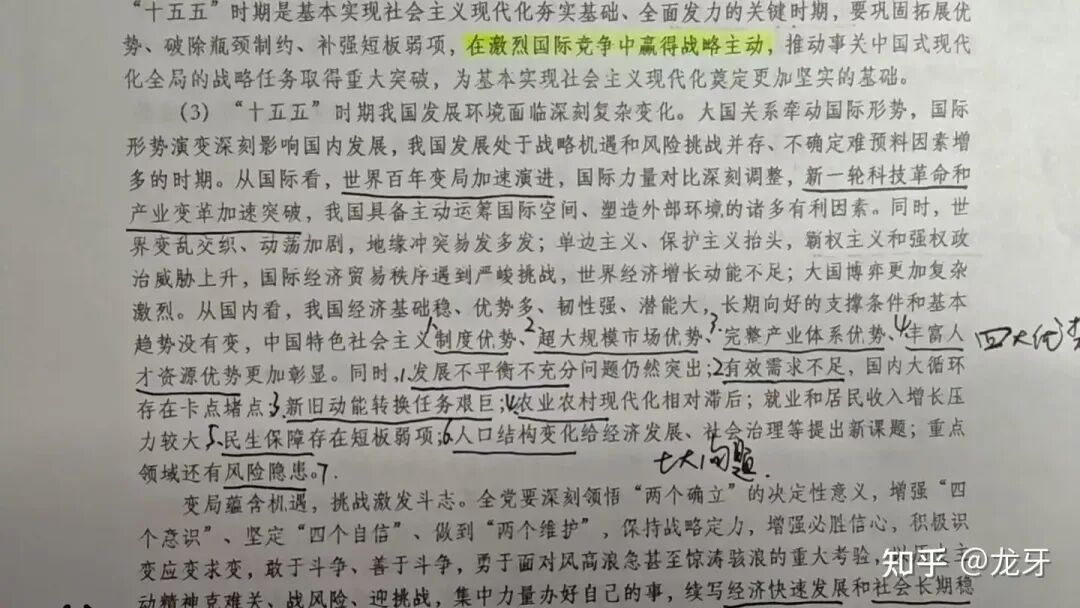 “十五五”时期是基本实现社会主义现代化夯实基础、全面发力的关键时期，要巩固拓展优
势、破除瓶颈制约、补强短板弱项，在激烈国际竞争中赢得战略主动，推动事关中国式现代
化全局的战略任务取得重大突破，为基本实现社会主义现代化奠定更加坚实的基础。
（3）“十五五”时期我国发展环境面临深刻复杂变化。大国关系牵动国际形势，国际
形势演变深刻影响国内发展，我国发展处于战略机遇和风险挑战并存、不确定难预料因素增
多的时期。从国际看，世界百年变局加速演进，国际力量对比深刻调整，新一轮科技革命和
产业变革加速突破，我国具备主动运筹国际空间、塑造外部环境的诸多有利因素。同时，世
界变乱交织、动荡加剧，地缘冲突易发多发；单边主义、保护主义抬头，霸权主义和强权政
治威胁上升，国际经济贸易秩序遇到严峻挑战，世界经济增长动能不足；大国博弈更加复杂
激烈。从国内看，我国经济基础稳、优势多、韧性强、潜能大，长期向好的支撑条件和基本
趋势没有变，中国特色社会主义1.制度优势、2.超大规模市场优势、3.完整产业体系优势、4.丰富人
四大优势
才资源优势更加彰显。同时，1.发展不平衡不充分问题仍然突出；2有效需求不足，国内大循环
存在卡点堵点；3.新旧动能转换任务艰巨；4.农业农村现代化相对滞后；就业和居民收入增长压
力较大；5.民生保障存在短板弱项；6.人口结构变化给经济发展、社会治理等提出新课题；重点
领域还有风险隐患。7.
七大问题
变局蕴含机遇，挑战激发斗志。全党要深刻领悟“两个确立”的决定性意义，增强“四
个意识”、坚定“四个自信”、做到“两个维护”，保持战略定力，增强必胜信心，积极识
变应变求变，敢于斗争、善于斗争，勇于面对风高浪急甚至惊涛骇浪的重大考验，
动精神克难关、战风险、迎挑战，集中力量办好自己的事，续写经济快速发展和社会长期稳
知乎 @龙牙